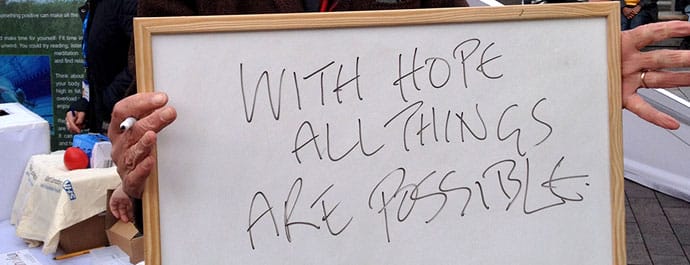 something positive can make all the
make time for yourself. Fit time in
unwind. You could try reading, listen
meditation
and find relax
Think about
your body
high in fat
overload
enjoy
WITH HOPE
ALL THINGS
ARE POSSIBLE.